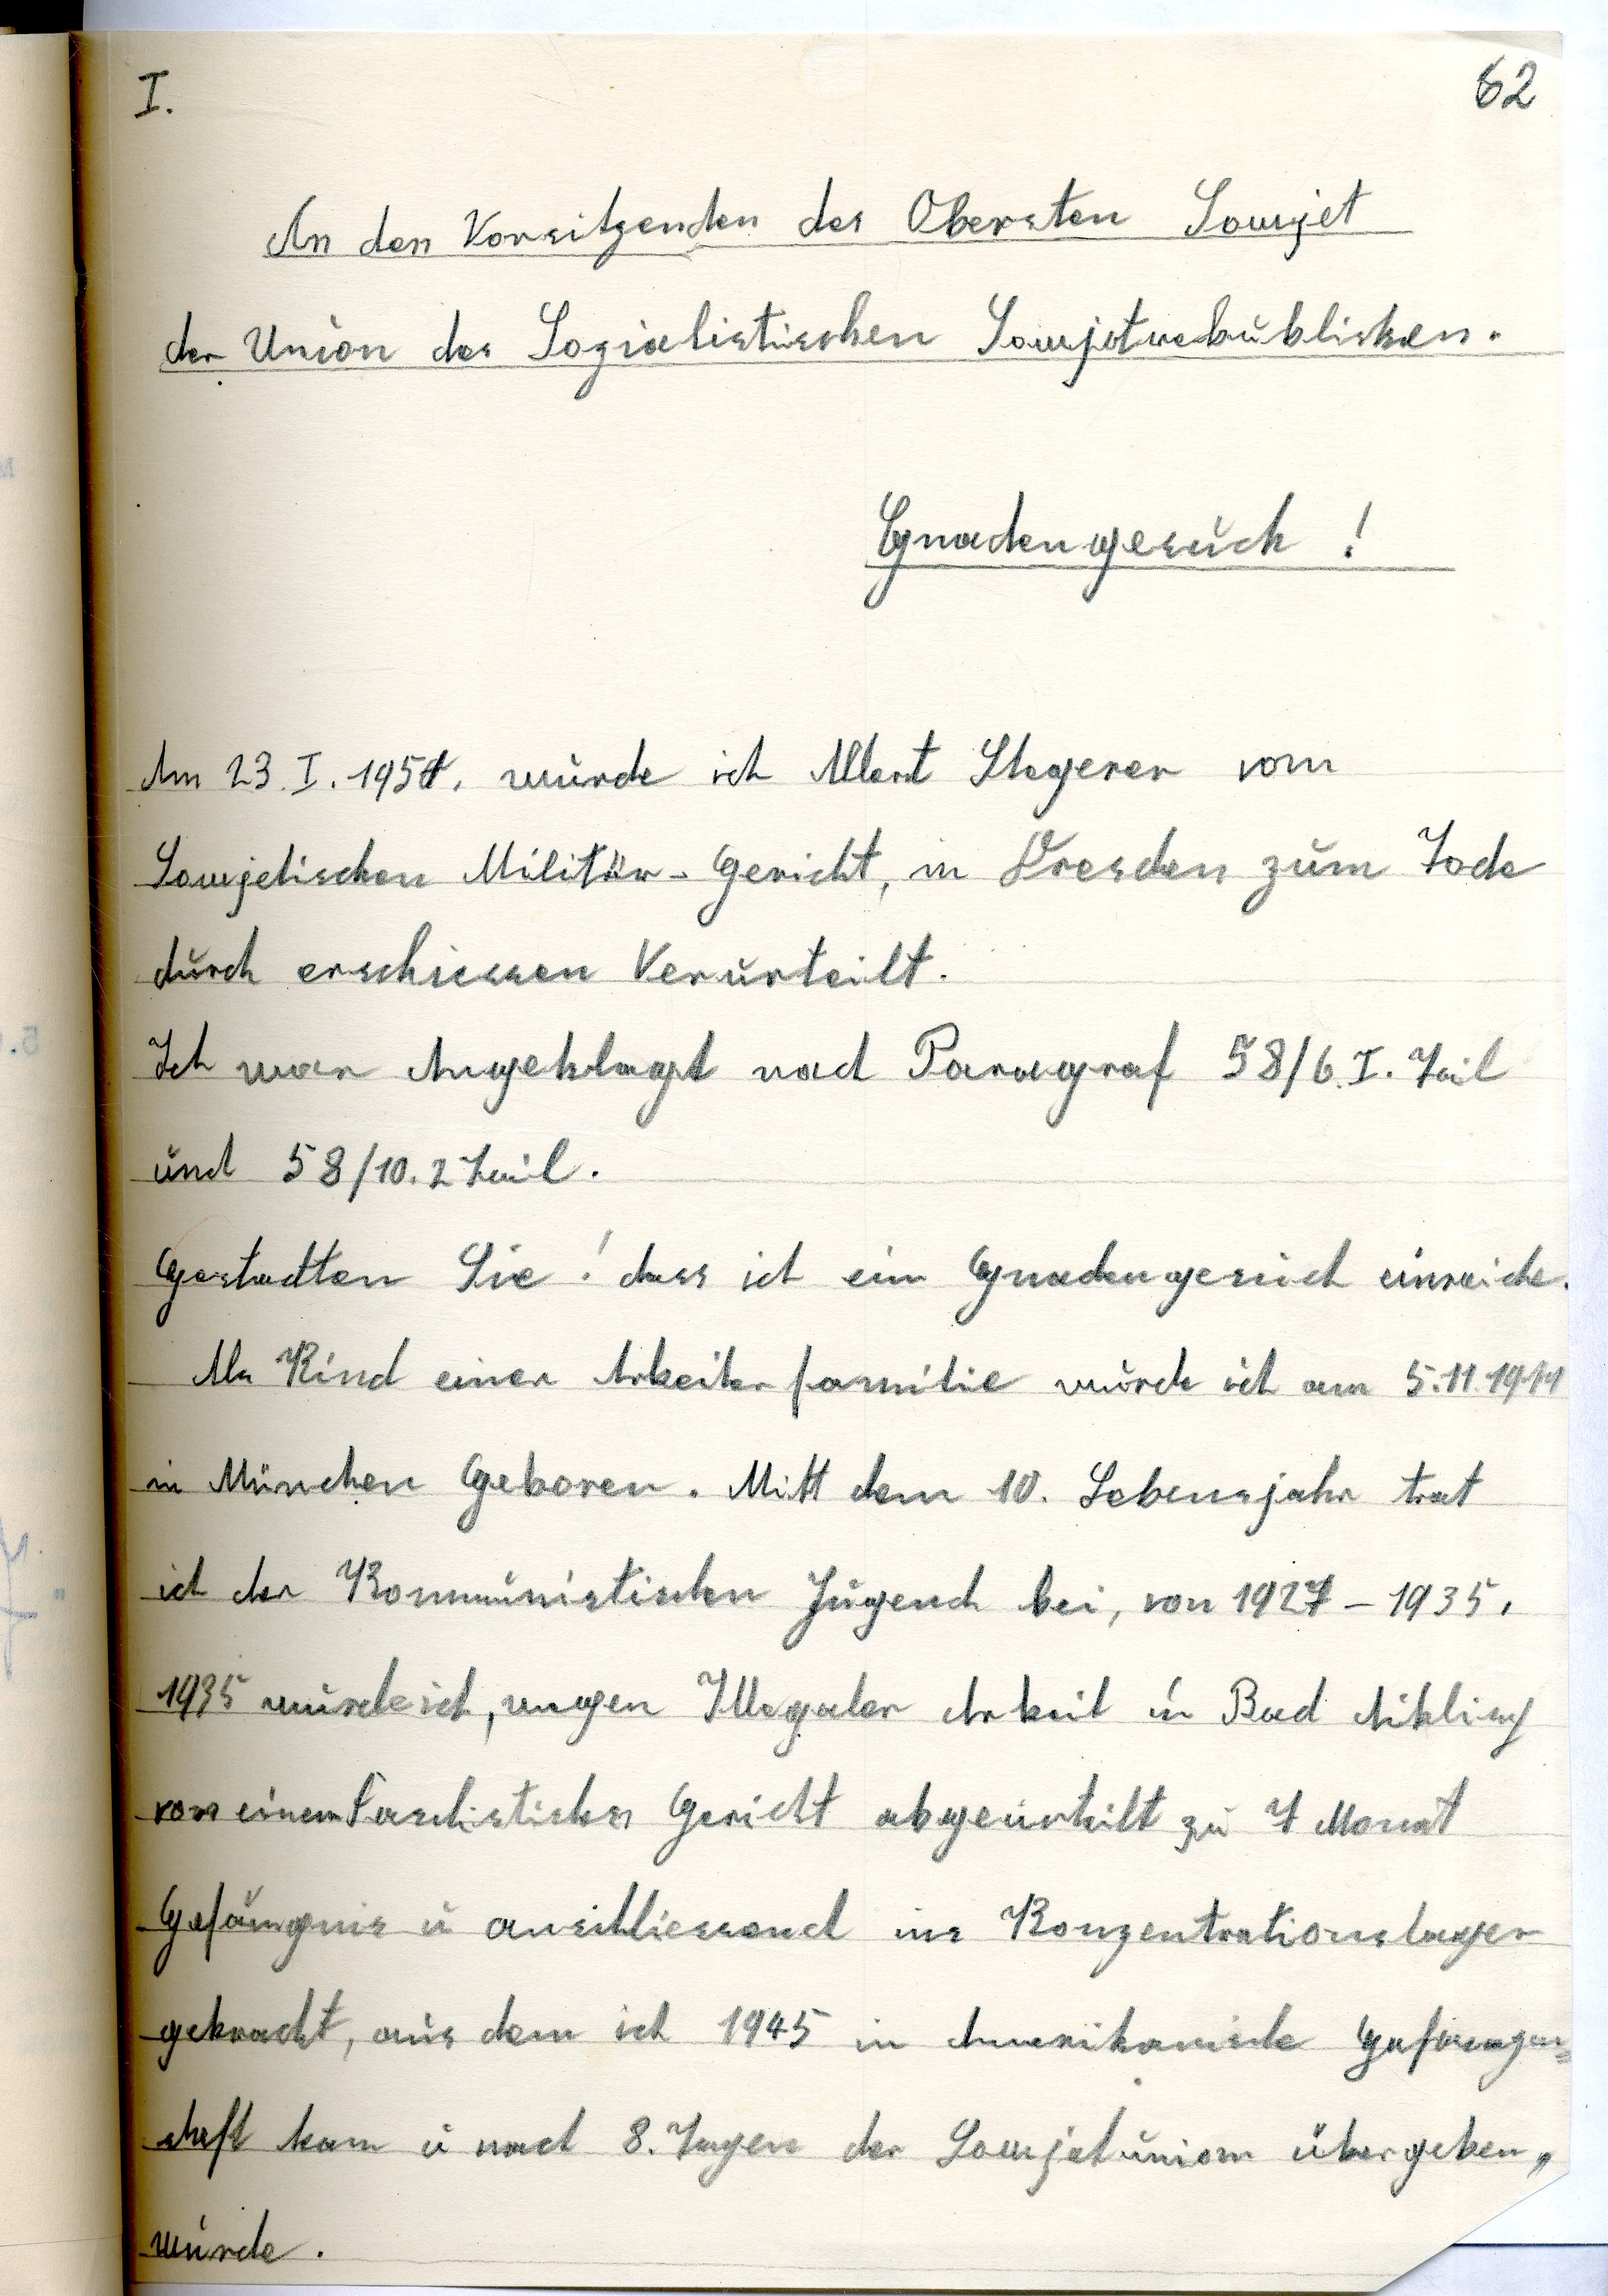 I.
62
An den Vorsitzenden des Obersten Sowjet
der Union der Sozialistischen Sowjetrebubliken.
Gnadengesuch !
Am 23. I. 1951. wurde ich Albert Stegerer vom
Sowjetischen Militär-Gericht, in Dresden zum Tode
durch erschiessen Verurteilt.
Ich war Angeklagt nach Paragraf 58/6. I. Teil
und 58/10. 2 Teil.
Gestadten Sie! dass ich ein Gnadengesuch einreiche.
Als Kind einer Arbeiterfamilie wurde ich am 5.11.1911
in München Geboren. Mitt dem 10. Lebensjahr trat
ich der Kommunistischen Jugend bei, von 1927 – 1935.
1935 wurde ich, wegen Illegaler Arbeit in Bad Aibling
von einem Faschistischen Gericht abgeurteilt zu 7 Monat
Gefängnis u anschliessend ins Konzentrationslager
gebracht, aus dem ich 1945 in Amerikanische Gefangen=
schaft kam u nach 8. Tagen der Sowjetunion übergeben,
wurde.